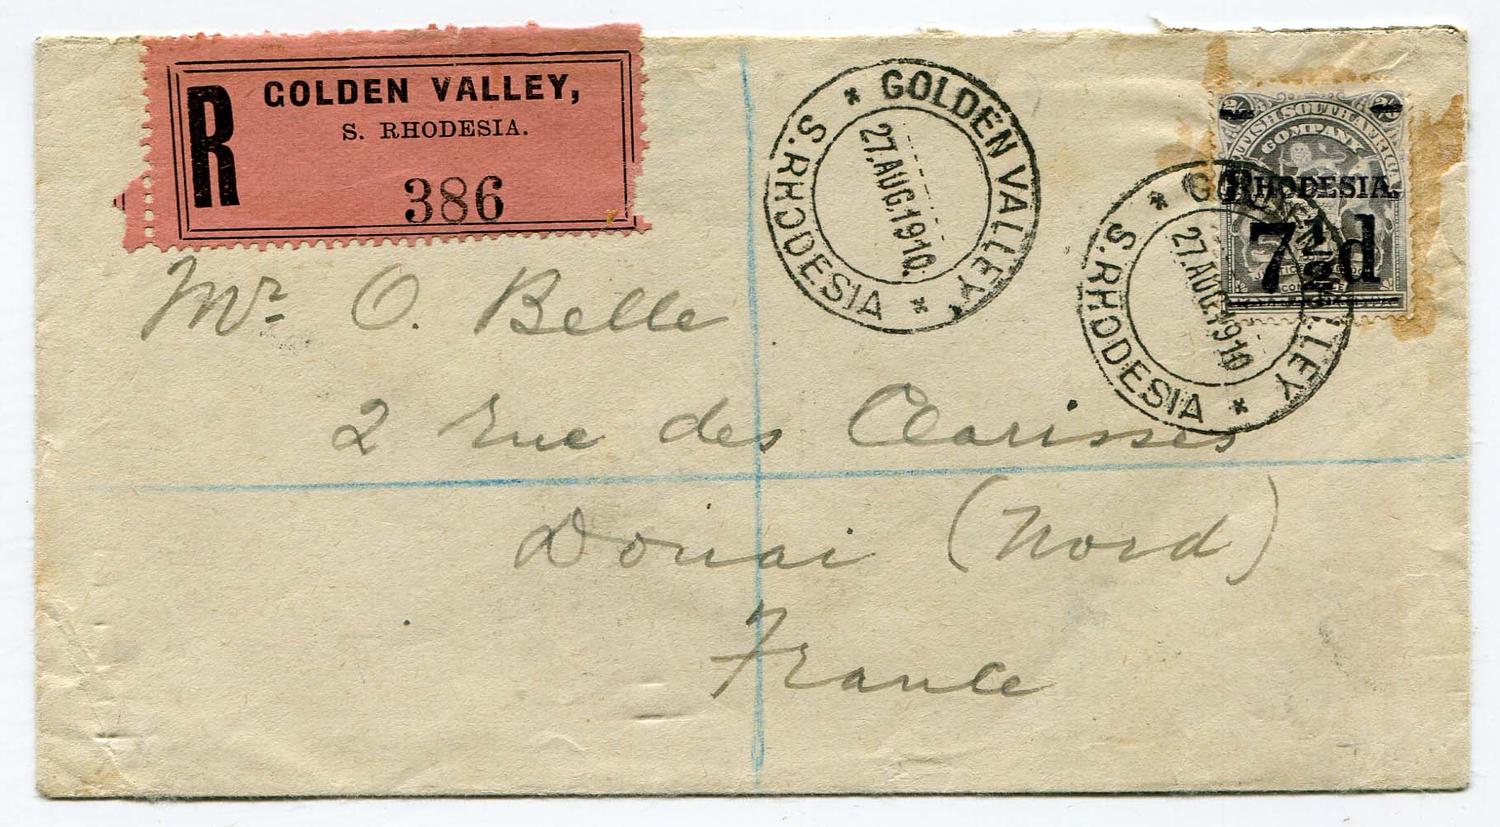 R
GOLDEN VALLEY,
S. RHODESIA.
386
* GOLDEN VALLEY. *
S. RHODESIA
27.AUG.1910.
2/6 2/6
BRITISH SOUTH AFRICA
COMPANY
RHODESIA.
7½d
* GOLDEN VALLEY *
S. RHODESIA
27.AUG.1910
Mr. O. Belle
2 Rue des Clarisses
Douai (Nord)
France